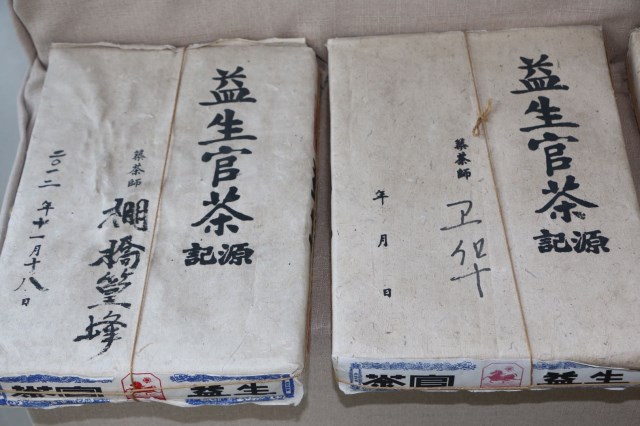 益生官茶
源記
築茶師
棚橋篁峰
二〇一二年十一月十八日
茶官 益生
益生官茶
源記
築茶師
卫华
年月日
茶官 益生